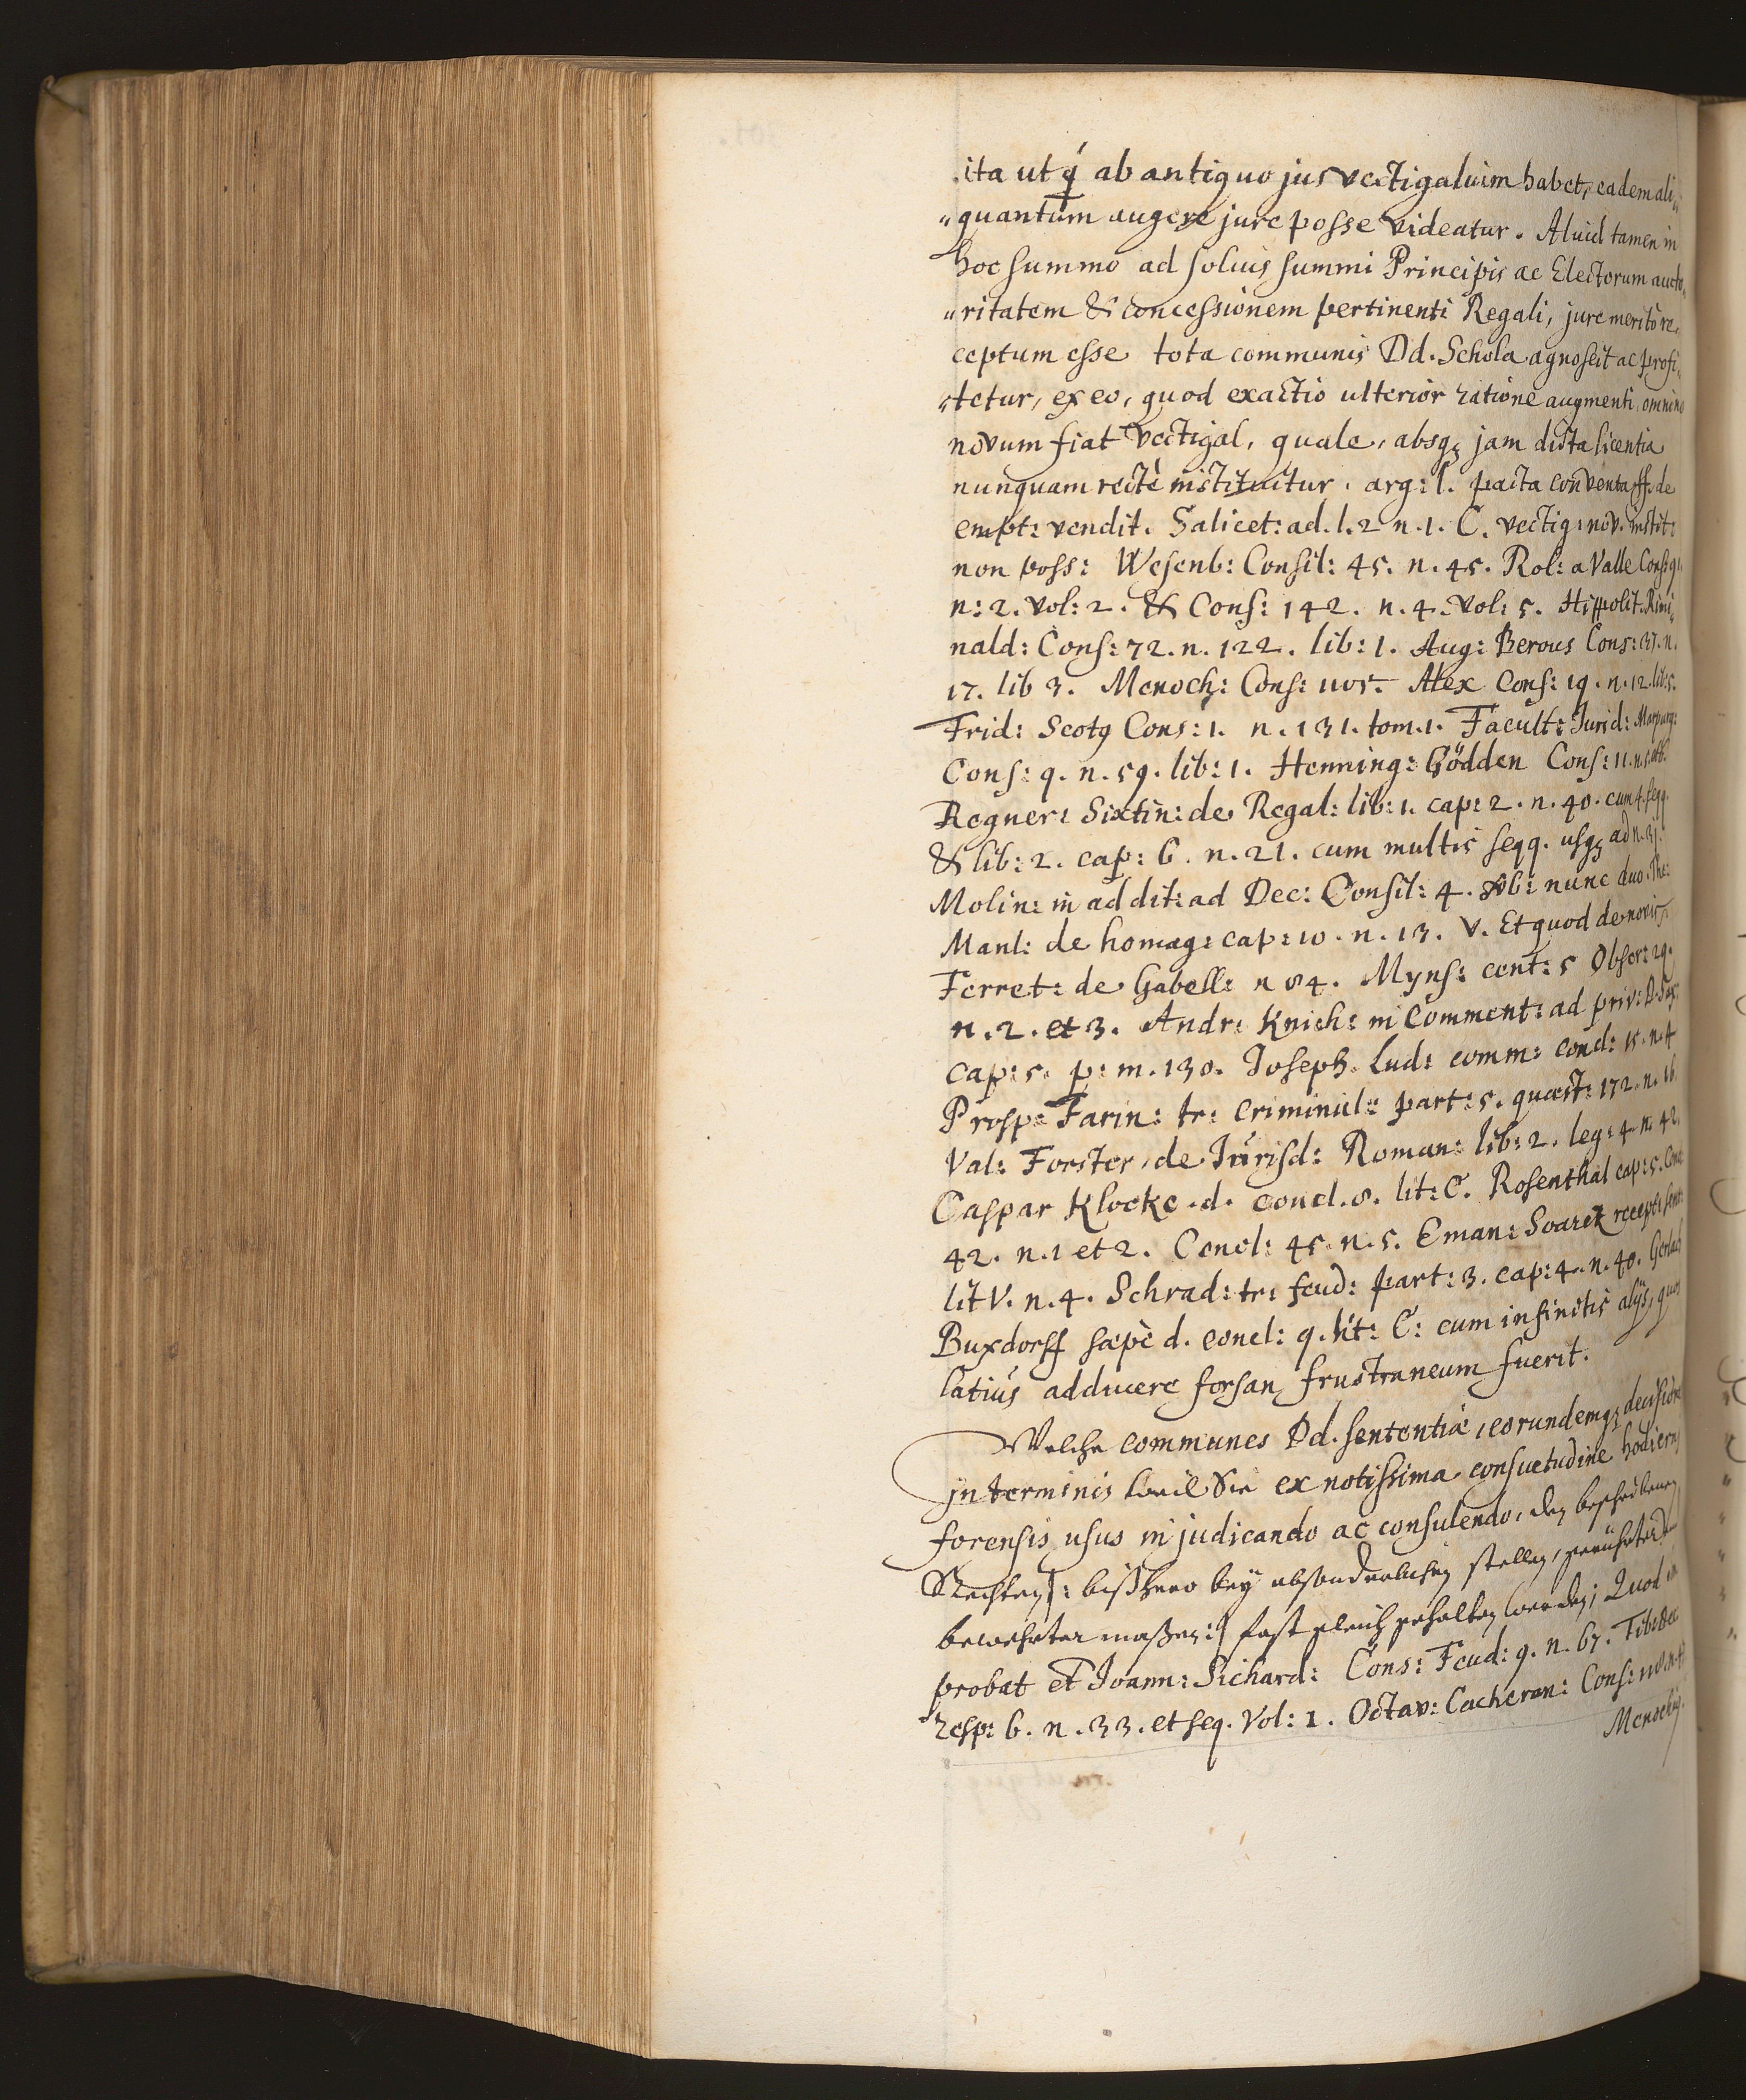 ita ut q́ ab antiquo jus vectigalium habet, eadem ali„
„quantum augere jure posse videatur. Aluid tamen in
hoc summo ad solius summi Principis ac Electorum aucto„
„ritatem & concessionem pertinenti Regali, jure meritò re„
ceptum esse tota communis Dd. Schola agnoscit ac profi„
„tetur, ex eo, quod exactio ulterior ratione augmenti omnino
novum fiat vectigal, quale, absqȝ jam dicta licentia
nunquam rectè instituitur. arg: l. pacta conventa ff. de
empt: vendit. Salicet: ad. l. 2 n. 1. C. vectig: nov. instit:
non poss: Wesenb: Consil: 45. n. 45. Rol: a Valle Cons: 91.
n: 2. vol: 2. & Cons: 142. n. 4. vol: 5. Hippolit. Rimi„
nald: Cons: 72. n. 122. lib: 1. Aug: Berous Cons: 37. n.
17. lib 3. Menoch: Cons: 1105. Alex Cons: 19. n. 12. lib: 5.
Frid: Scotq Cons: 1. n. 131. tom. 1. Facult: Jurid: Marpurg:
Cons: 9. n. 59. lib: 1. Henning: Gödden Cons: 11. n.
Regner: Sixtin: de Regal: lib: 1. cap: 2. n. 40. cum 4. seqq.
& lib: 2. cap: 6. n. 21. cum multis seqq. usqȝ ad n. 31.
Molin: in addit: ad Dec: Consil: 4. sub: nunc duo. The:
Manl: de homag: cap: 10. n. 13. v. Et quod de noviss.
Ferret: de Gabell: n 84. Myns: cent: 5 Obser: 29.
n. 2. et 3. Andr: Knich: in Comment: ad priv: D. Sax:
cap: 5. p: m. 130. Joseph. Lud: comm: concl: 15. n. 4
Prosp: Farin: tr: criminal: part: 5. quæst: 172. n. 16.
Val: Forster, de Jurisd: Roman: lib: 2. leg: 4. n. 42.
Caspar Klocke. d. concl. 8. lit: C. Rosenthal cap: 5. Concl:
42. n. 1 et 2. Concl: 45. n. 5. Eman: Soarez recept: sent:
lit V. n. 4. Schrad: tr: feud: part: 3. cap: 4. n. 40. Gerlach
Buxdorff sæpè d. concl: 9. lit: C: cum infinitis alijs, quos
latiùs adducere forsan frustraneum fuerit.
Welche communes Dd. sententiæ, eorundemqȝ decisione
in terminis weil Sie ex notissima consuetudine hodierni
forensis usus in judicando ac consulendo, den beschriebenen
Rechten |: bißhero bey absonderlichen stellen, gerührter
bewehrter maßen :| fast gleich gehalten werden; Quod
probat et Joann: Sichard: Cons: Feud: 9. n. 67. Tiber. Dec
resp: 6. n. 33. et seq. Vol: 1. Octav: Cacheran: Cons: 110. n. 4
Menoch: